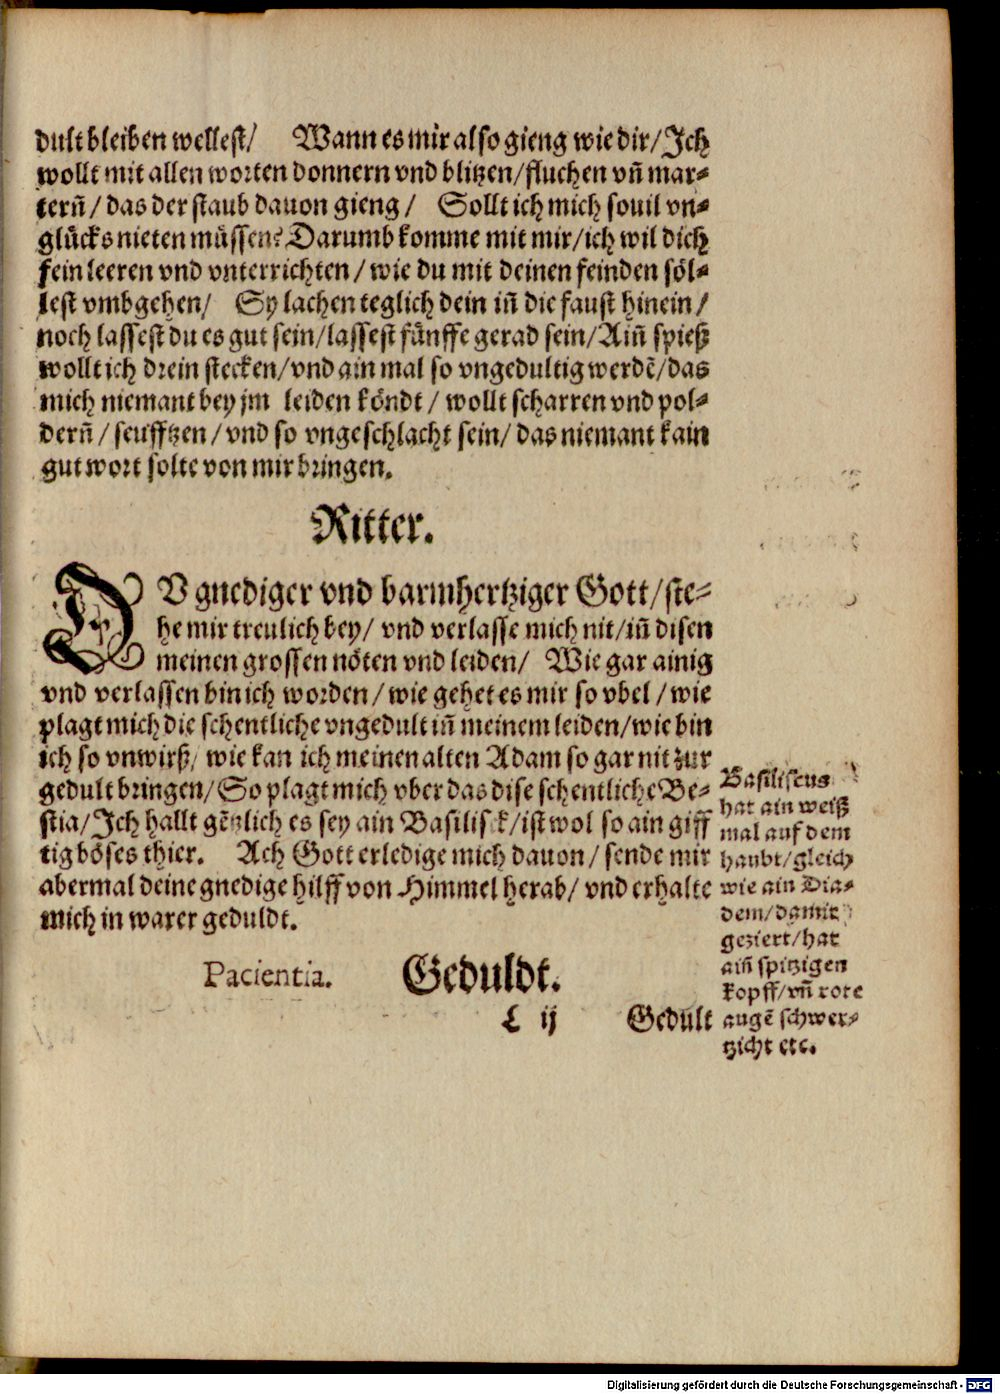 dult bleiben wellest/ Wann es mir also gieng wie dir/Ich
wollt mit allen worten donnern vnd blitzen/fluchen vñ mar-
terñ/das der staub dauon gieng/ Sollt ich mich souil vn-
glücks nieten müssen? Darumb komme mit mir/ich wil dich
fein leeren vnd vnterrichten/wie du mit deinen feinden söl-
lest vmbgehen/ Sy lachen teglich dein iñ die faust hinein/
noch lassest du es gut sein/lassest fünffe gerad sein/Aiñ spieß
wollt ich drein stecken/vnd ain mal so vngedultig werdē/das
mich niemant bey jm leiden köndt/wollt scharren vnd pol-
derñ/seufftzen/vnd so vngeschlacht sein/das niemant kain
gut wort solte von mir bringen.
Ritter.
DV gnediger vnd barmhertziger Gott/ste-
he mir treulich bey/vnd verlasse mich nit/iñ disen
meinen grossen nöten vnd leiden/ Wie gar ainig
vnd verlassen bin ich worden/wie gehet es mir so vbel/wie
plagt mich die schentliche vngedult iñ meinem leiden/wie bin
ich so vnwirß/wie kan ich meinen alten Adam so gar nit zur
gedult bringen/So plagt mich vber das dise schentliche Be-
stia/Ich hallt gētzlich es sey ain Basilisck/ist wol so ain giff
tig böses thier. Ach Gott erledige mich dauon/sende mir
abermal deine gnedige hilff von Himmel herab/vnd erhalte
mich in warer geduldt.
Basiliscus
hat ain weiß
mal auf dem
haubt/gleich
wie ain Dia-
dem/damit
geziert/hat
aiñ spitzigen
kopff/vñ rote
augē schwer-
tzicht etc.
Pacientia. Geduldt.
L ij Gedult
Digitalisierung gefördert durch die Deutsche Forschungsgemeinschaft - DFG